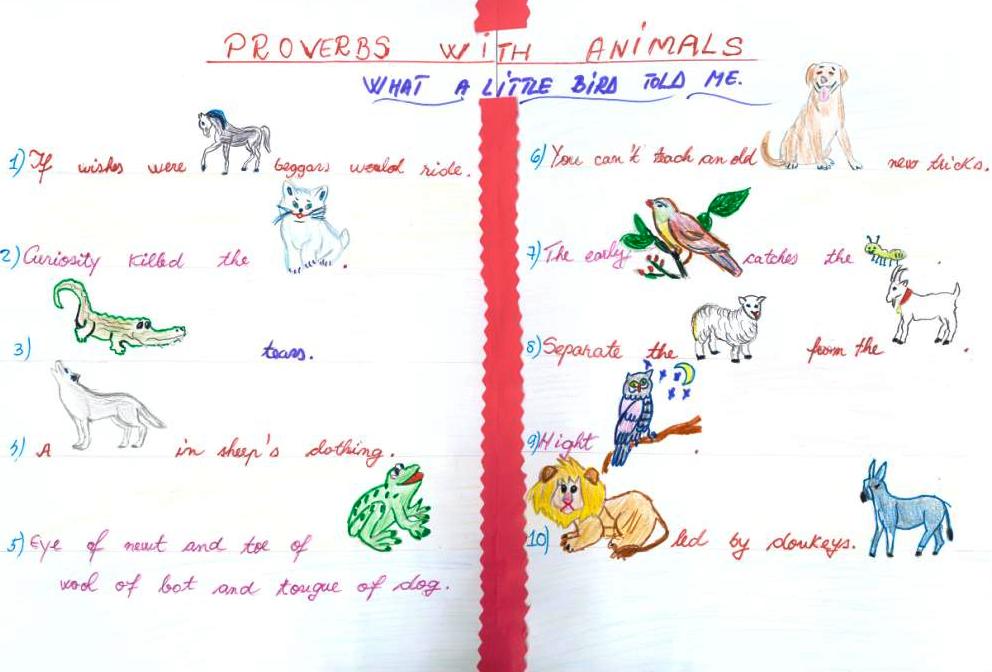 PROVERBS WITH ANIMALS
WHAT A LITTLE BIRD TOLD ME.
1) If wishes were beggars would ride.
2) Curiosity killed the .
3) tears.
4) A in sheep's clothing.
5) Eye of newt and toe of
wool of bat and tongue of dog.
6) You can't teach an old new tricks.
7) The early catches the .
8) Separate the from the .
9) Night .
10) led by donkeys.